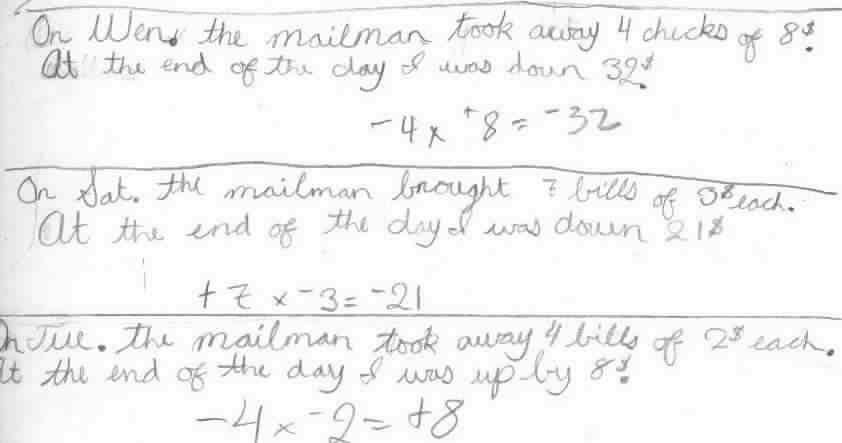 On Wen. the mailman took away 4 checks of 8$.
At the end of the day I was down 32$.
-4 x +8 = -32
On Sat. the mailman brought 7 bills of 3$ each.
At the end of the day I was down 21$
+7 x -3 = -21
On Tue. the mailman took away 4 bills of 2$ each.
At the end of the day I was up by 8$.
-4 x -2 = +8